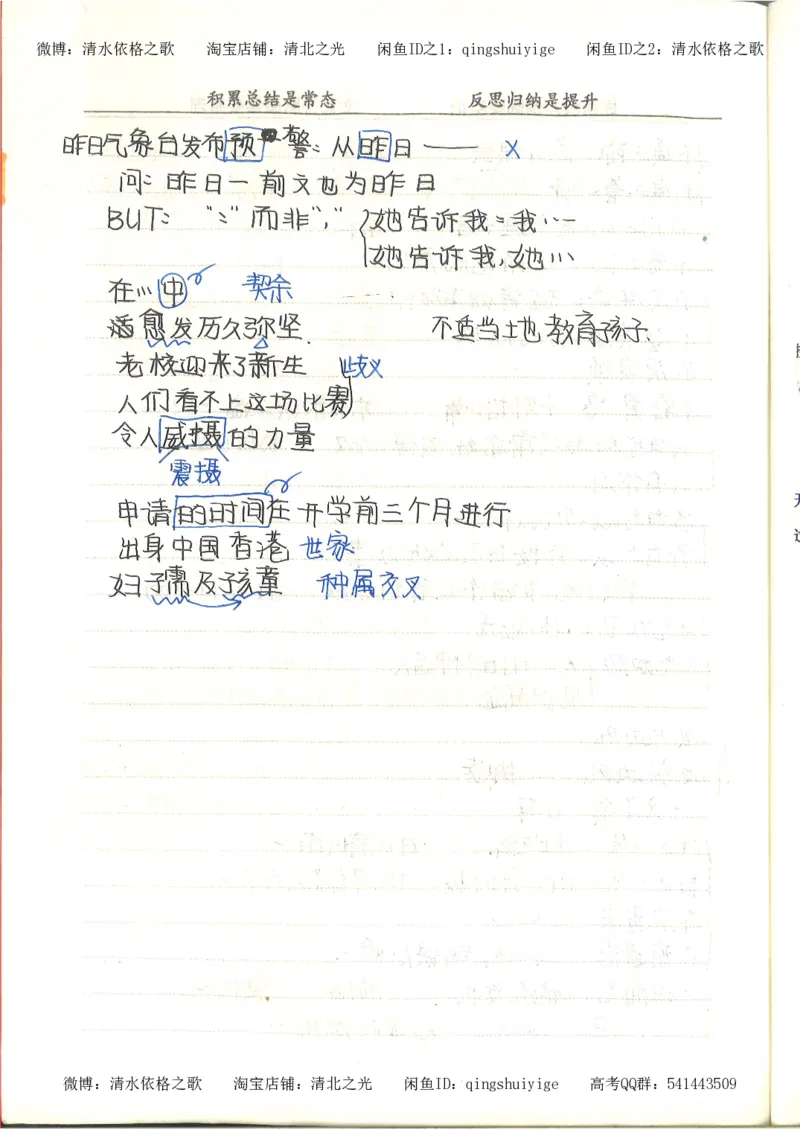 微博：清水依格之歌 淘宝店铺：清北之光 闲鱼ID之1：qingshuiyige 闲鱼ID之2：清水依格之歌
积累总结是常态 反思归纳是提升
昨日气象台发布预警：从昨日—— X
问：昨日一前文也为昨日
BUT：“：”而非“，” 她告诉我：我…
她告诉我，她…
在…中 契余
愈发历久弥坚. 不适当土地教育孩子.
老校迎来了新生 歧义
人们看不上这场比赛
令人威摄的力量
震摄
申请的时间在开学前三个月进行
出身中国香港 世家
妇孺及孩童 种属交叉
微博：清水依格之歌 淘宝店铺：清北之光 闲鱼ID：qingshuiyige 高考QQ群：541443509